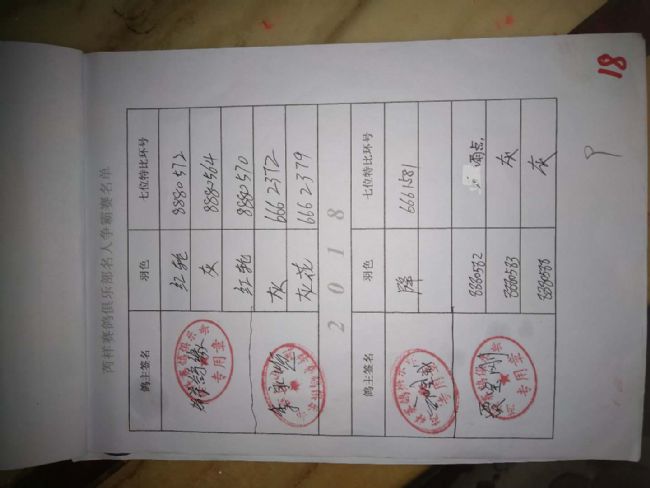 芮祥赛鸽俱乐部名人争霸赛名单
鸽主签名 羽色 七位特比环号
红轮 8880572
灰 8880564
红轮 8880570
灰 6662372
灰花 6662379
专用章
2018
鸽主签名 羽色 七位特比环号
6661581
8880582 雨点
8880583 灰
8880588 灰
专用章
18